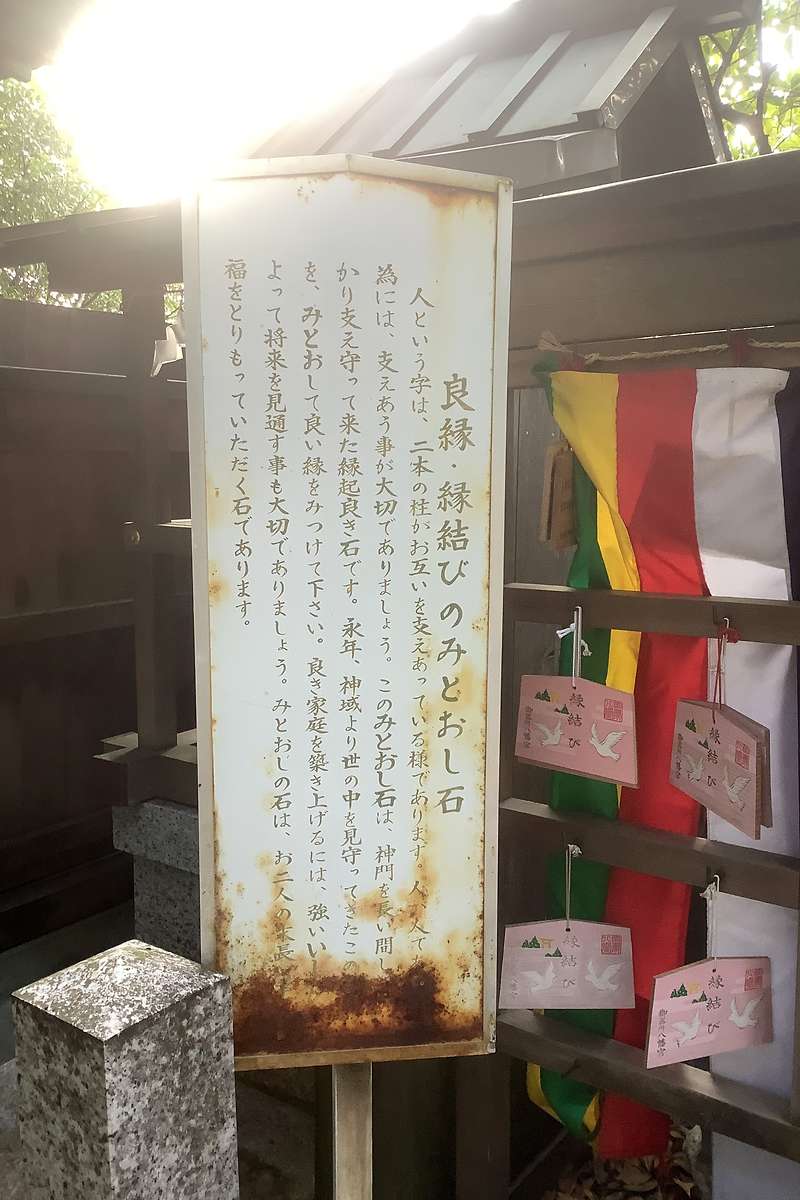 良縁・縁結びのみとおし石
人という字は、二本の柱がお互いを支えあっている様であります 人
為には、支えあう事が大切でありましょう。このみとおし石は、神門を長い間し
かり支え守って来た縁起良き石です。永年、神域より世の中を見守ってきたこの
を、みとおして良い縁をみつけて下さい。良き家庭を築き上げるには、強い
よって将来を見通す事も大切でありましょう。みとおしの石は、お二人の
福をとりもっていただく石であります。
縁結び
縁結び
御器所八幡宮
縁結び
縁結び
御器所八幡宮